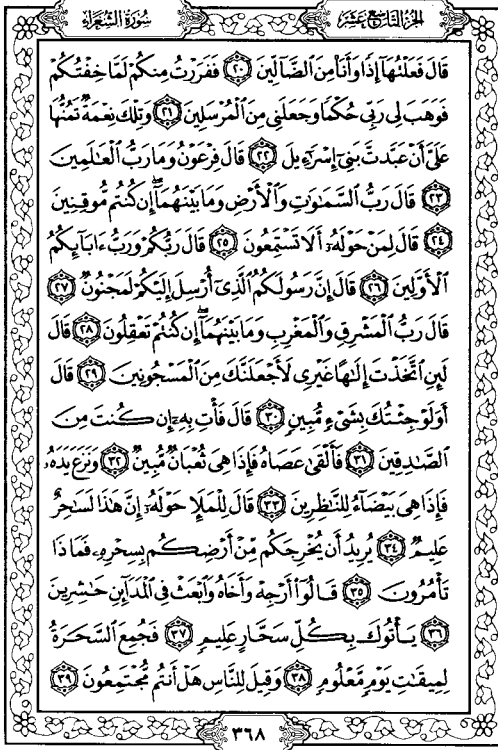 سُورَةُ الشُّعَرَاءِ الجُزْءُ التَّاسِعَ عَشَرَ
قَالَ فَعَلْتُهَآ إِذًا وَأَنَا۠ مِنَ ٱلضَّآلِّينَ ٢٠ فَفَرَرْتُ مِنكُمْ لَمَّا خِفْتُكُمْ
فَوَهَبَ لِى رَبِّى حُكْمًا وَجَعَلَنِى مِنَ ٱلْمُرْسَلِينَ ٢١ وَتِلْكَ نِعْمَةٌ تَمُنُّهَا
عَلَىَّ أَنْ عَبَّدتَّ بَنِىٓ إِسْرَٰٓءِيلَ ٢٢ قَالَ فِرْعَوْنُ وَمَا رَبُّ ٱلْعَٰلَمِينَ
٢٣ قَالَ رَبُّ ٱلسَّمَٰوَٰتِ وَٱلْأَرْضِ وَمَا بَيْنَهُمَآ ۖ إِن كُنتُم مُّوقِنِينَ
٢٤ قَالَ لِمَنْ حَوْلَهُۥٓ أَلَا تَسْتَمِعُونَ ٢٥ قَالَ رَبُّكُمْ وَرَبُّ ءَابَآئِكُمُ
ٱلْأَوَّلِينَ ٢٦ قَالَ إِنَّ رَسُولَكُمُ ٱلَّذِىٓ أُرْسِلَ إِلَيْكُمْ لَمَجْنُونٌ ٢٧
قَالَ رَبُّ ٱلْمَشْرِقِ وَٱلْمَغْرِبِ وَمَا بَيْنَهُمَآ ۖ إِن كُنتُمْ تَعْقِلُونَ ٢٨ قَالَ
لَئِنِ ٱتَّخَذْتَ إِلَٰهًا غَيْرِى لَأَجْعَلَنَّكَ مِنَ ٱلْمَسْجُونِينَ ٢٩ قَالَ
أَوَلَوْ جِئْتُكَ بِشَىْءٍ مُّبِينٍ ٣٠ قَالَ فَأْتِ بِهِۦٓ إِن كُنتَ مِنَ
ٱلصَّٰدِقِينَ ٣١ فَأَلْقَىٰ عَصَاهُ فَإِذَا هِىَ ثُعْبَانٌ مُّبِينٌ ٣٢ وَنَزَعَ يَدَهُۥ
فَإِذَا هِىَ بَيْضَآءُ لِلنَّٰظِرِينَ ٣٣ قَالَ لِلْمَلَإِ حَوْلَهُۥٓ إِنَّ هَٰذَا لَسَٰحِرٌ
عَلِيمٌ ٣٤ يُرِيدُ أَن يُخْرِجَكُم مِّنْ أَرْضِكُم بِسِحْرِهِۦ فَمَاذَا
تَأْمُرُونَ ٣٥ قَالُوٓا۟ أَرْجِهْ وَأَخَاهُ وَٱبْعَثْ فِى ٱلْمَدَآئِنِ حَٰشِرِينَ
٣٦ يَأْتُوكَ بِكُلِّ سَحَّارٍ عَلِيمٍ ٣٧ فَجُمِعَ ٱلسَّحَرَةُ
لِمِيقَٰتِ يَوْمٍ مَّعْلُومٍ ٣٨ وَقِيلَ لِلنَّاسِ هَلْ أَنتُم مُّجْتَمِعُونَ ٣٩
٣٦٨